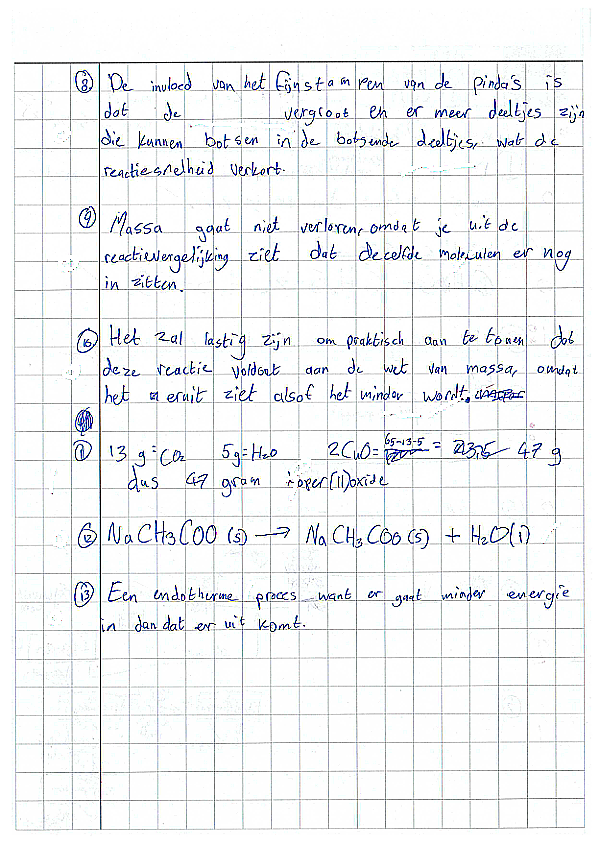 8 De invloed van het fijnstampen van de pinda's is
dat de vergroot en er meer deeltjes zijn
die kunnen botsen in de botsende deeltjes, wat de
reactiesnelheid verkort.
9 Massa gaat niet verloren, omdat je uit de
reactievergelijking ziet dat dezelfde molekulen er nog
in zitten.
10 Het zal lastig zijn om praktisch aan te tonen dat
deze reactie voldoet aan de wet van massa, omdat
het eruit ziet alsof het minder wordt.
11 13 g = CO2 5g = H2O 2CuO = 65-13-5 = 47 g
dus 47 gram koper(II)oxide
12 NaCH3COO (s) → NaCH3COO (s) + H2O(l)
13 Een endotherme proces want er gaat minder energie
in dan dat er uit komt.